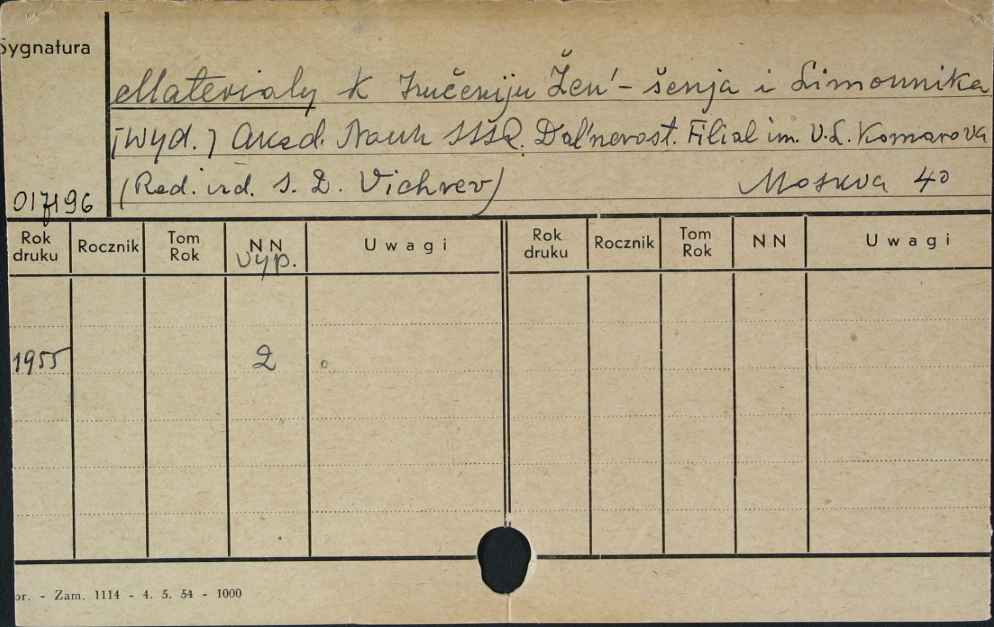 Sygnatura
Materialy k Izučeniju Žeń-šenja i Limonnika
[Wyd.] Akad. Nauk SSSR. Dal'nevost. Filial im. V.L. Komarova
(Red. izd. S. D. Vichrev) Moskva 40
017196
Rok druku Rocznik Tom Rok NN Uwagi Rok druku Rocznik Tom Rok NN Uwagi
Vyp.
1955 2
or. - Zam. 1114 - 4. 5. 54 - 1000